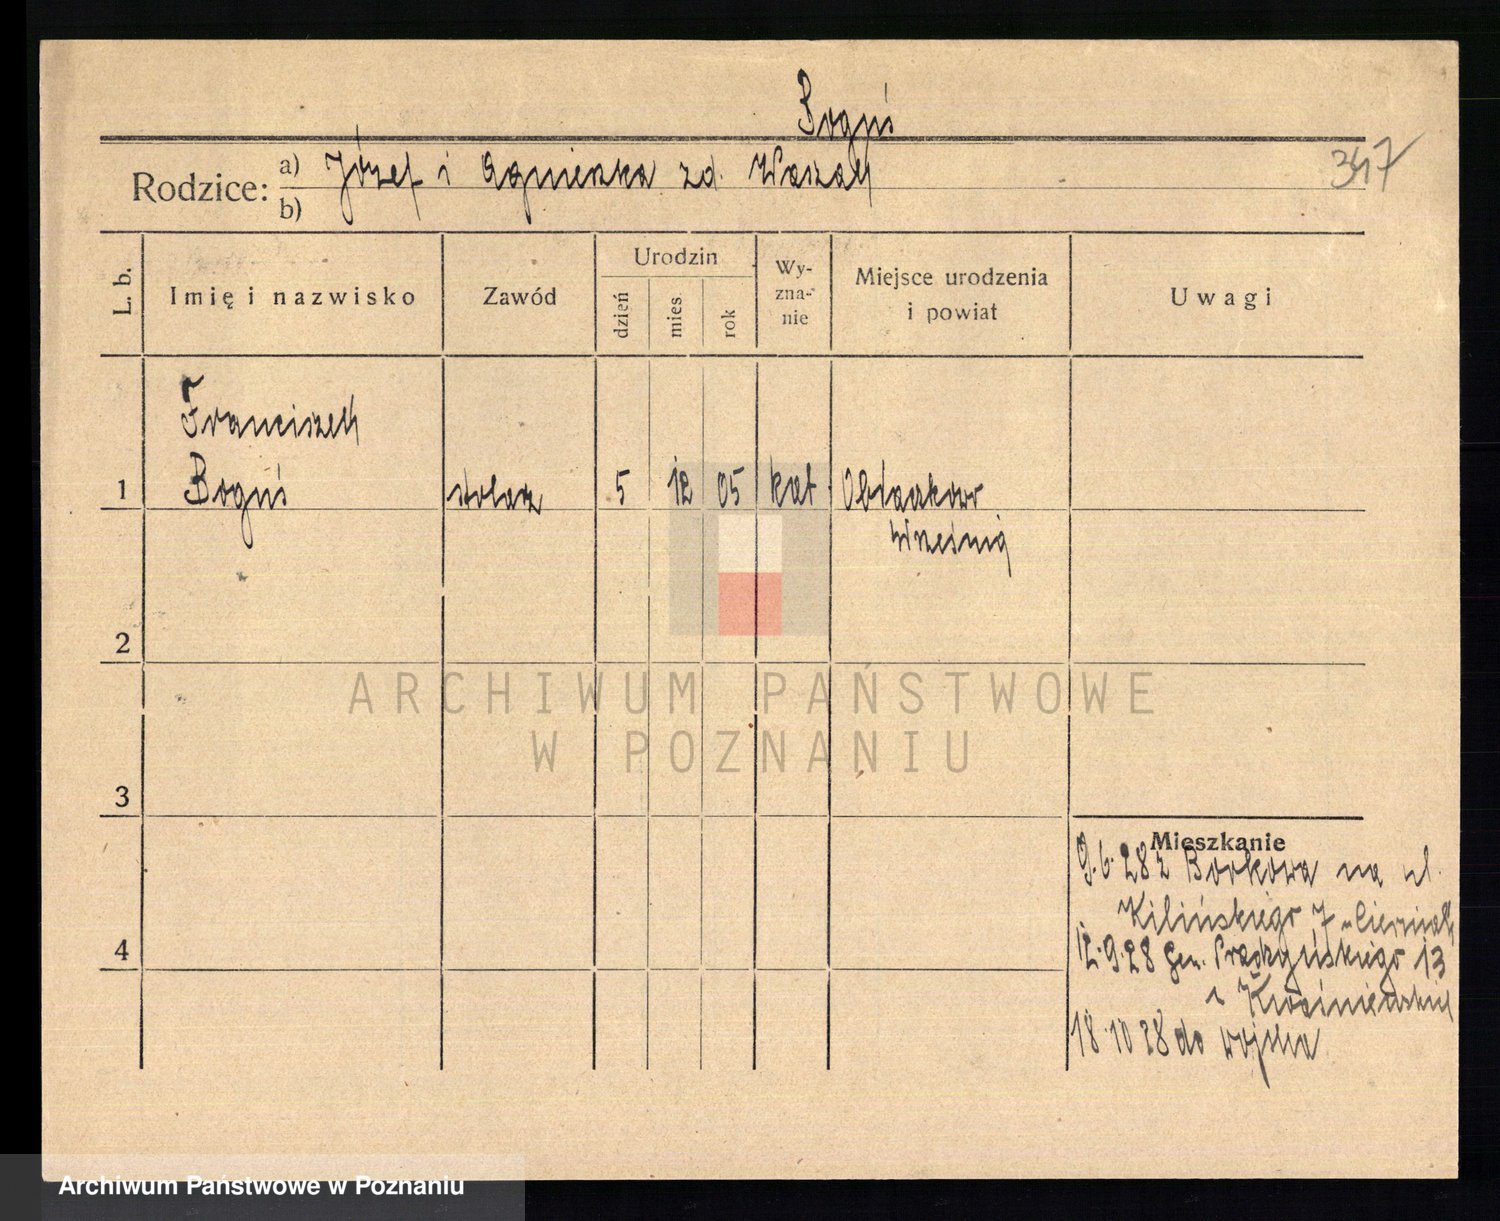 Boguś
347
Rodzice: a) Józef i Agnieszka zd. Waszak
b)
L. b.
Imię i nazwisko
Zawód
Urodzin
dzień
mies.
rok
Wy-
zna-
nie
Miejsce urodzenia
i powiat
Uwagi
Franciszek
1 Boguś stolarz 5 12 05 kat. Obłaczkowo
Września
2
ARCHIWUM PAŃSTWOWE
W POZNANIU
3
Mieszkanie
9.6.28 z Borkowa na ul.
Kilińskiego 7
12.9.28 Gen. Prądzyńskiego 13
18.10 28 do wojska
4
Archiwum Państwowe w Poznaniu